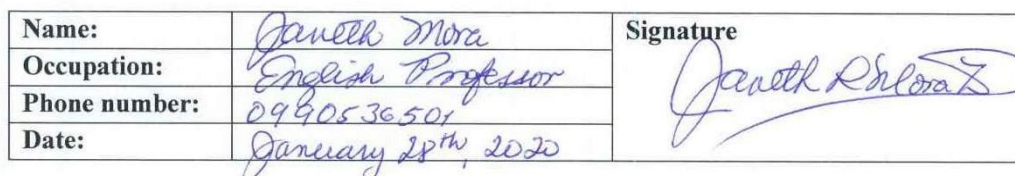 Name: Janeth Mora
Signature
Occupation: English Professor
Janeth R Mora Z
Phone number: 0990536501
Date: January 28th, 2020